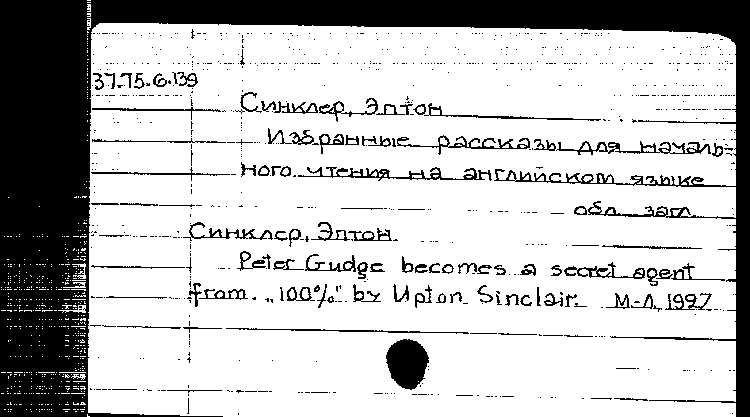 37.75.6.139
Синклер, Эптон
Избранные рассказы для началь-
ного чтения на английском языке
обл. загл.
Синклер, Эптон.
Peter Gudge becomes a secret agent
from „100%" by Upton Sinclair. М-Л, 1927